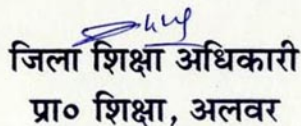 जिला शिक्षा अधिकारी
प्रा० शिक्षा, अलवर